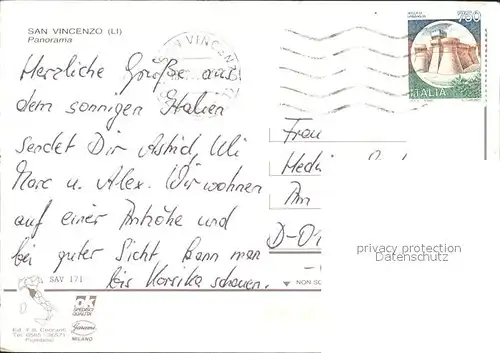 SAN VINCENZO (LI)
Panorama
SAN VINCENZO
750
ITALIA
Herzliche Grüße aus
dem sonnigen Italien
sendet Dir Astrid, Uli
Marc u. Alex. Wir wohnen
auf einer Anhöhe und
bei guter Sicht kann man
bis Korsika schauen.
Frau
Am
D-01
privacy protection
Datenschutz
SAV 171
NON-SC
MILANO